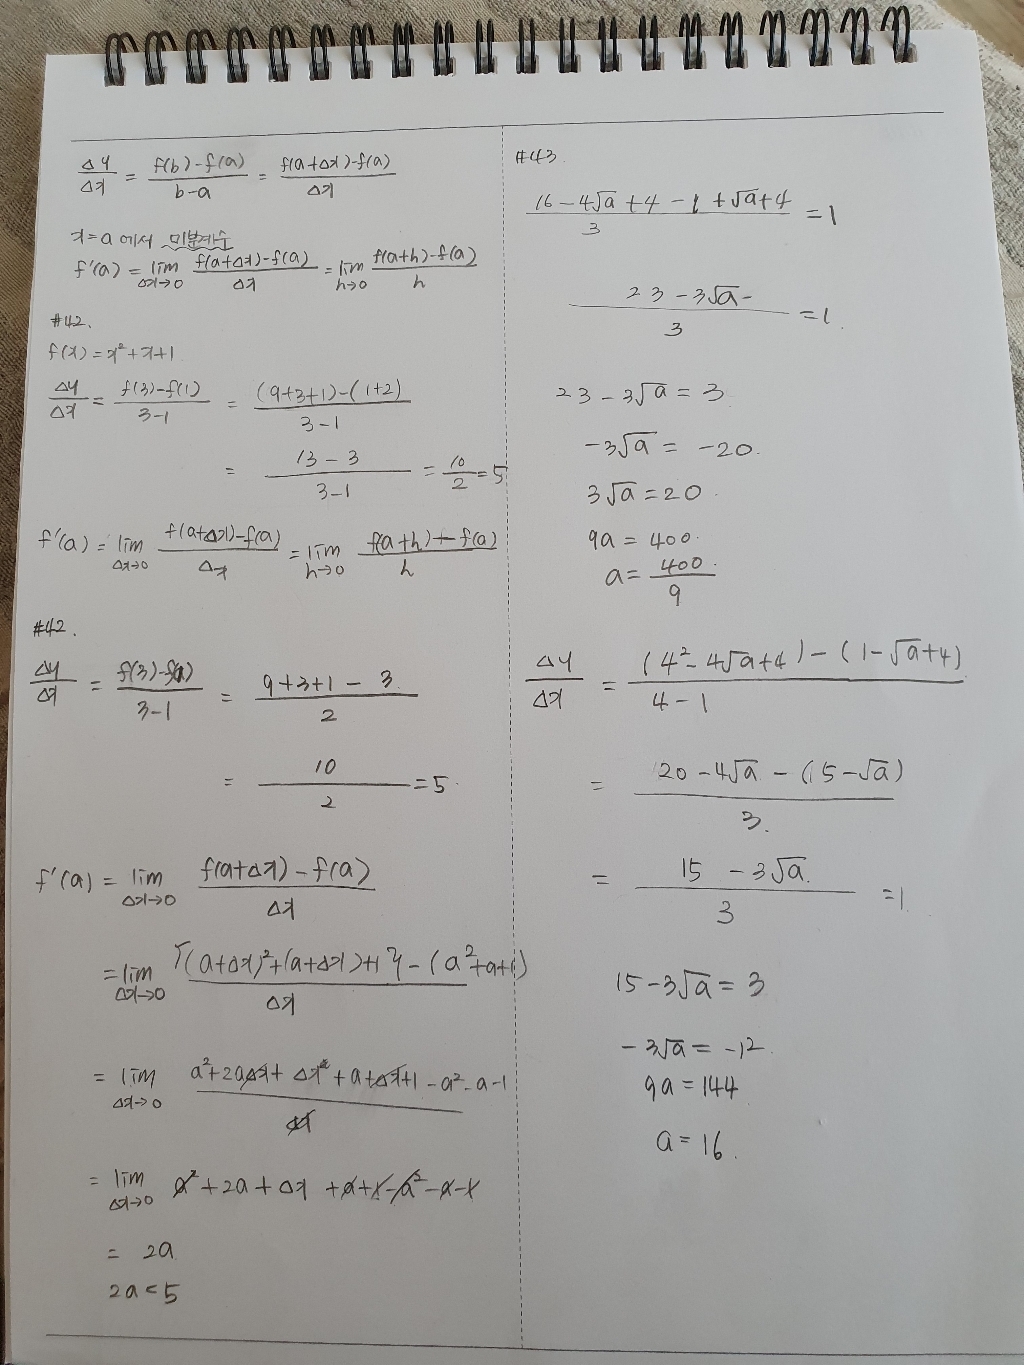 Δy/Δx = f(b)-f(a)/b-a = f(a+Δx)-f(a)/Δx
x=a 에서 미분계수
f'(a) = lim Δx→0 f(a+Δx)-f(a)/Δx = lim h→0 f(a+h)-f(a)/h
#42.
f(x) = x²+x+1
Δy/Δx = f(3)-f(1)/3-1 = (9+3+1)-(1+2)/3-1
= 13-3/3-1 = 10/2 = 5
f'(a) = lim Δx→0 f(a+Δx)-f(a)/Δx = lim h→0 f(a+h)-f(a)/h
#42.
Δy/Δx = f(3)-f(1)/3-1 = 9+3+1-3/2
= 10/2 = 5
f'(a) = lim Δx→0 f(a+Δx)-f(a)/Δx
= lim Δx→0 {(a+Δx)²+(a+Δx)+1}-(a²+a+1)/Δx
= lim Δx→0 a²+2aΔx+Δx²+a+Δx+1-a²-a-1/Δx
= lim Δx→0 a²+2a+Δx+a+1-a²-a-1
= 2a
2a<5
#43.
16-4√a+4-1+√a+4/3 = 1
23-3√a-/3 = 1.
23-3√a = 3
-3√a = -20.
3√a = 20.
9a = 400.
a = 400/9
Δy/Δx = (4²-4√a+4)-(1-√a+4)/4-1
= 20-4√a-(5-√a)/3.
= 15-3√a/3 = 1.
15-3√a = 3
-3√a = -12.
9a = 144
a = 16.